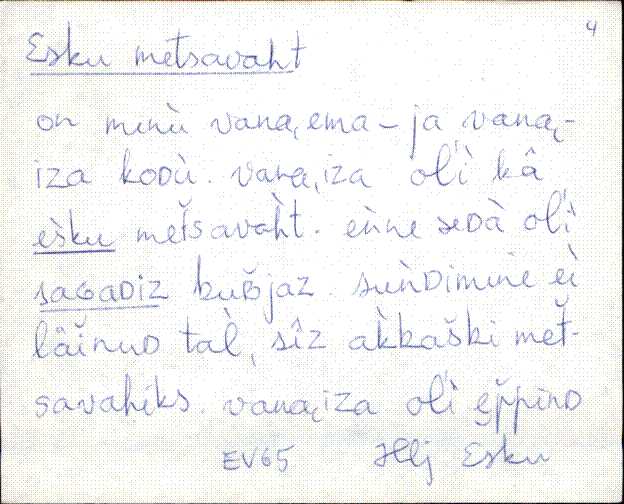 4
Esku metsavaht
on minù vana,ema - ja vana,-
iza koDù. vana,iza ol'ì kâ
eìsku meťsavaht. eǹne seDà ol'ì
saGaDiz kuBjaz. suǹDimine eì
läǐnuD tal̀, sîz aǩkaški meť-
savahiks. vana,iza ol'ì ěppinD
EV65 Hlj Esku